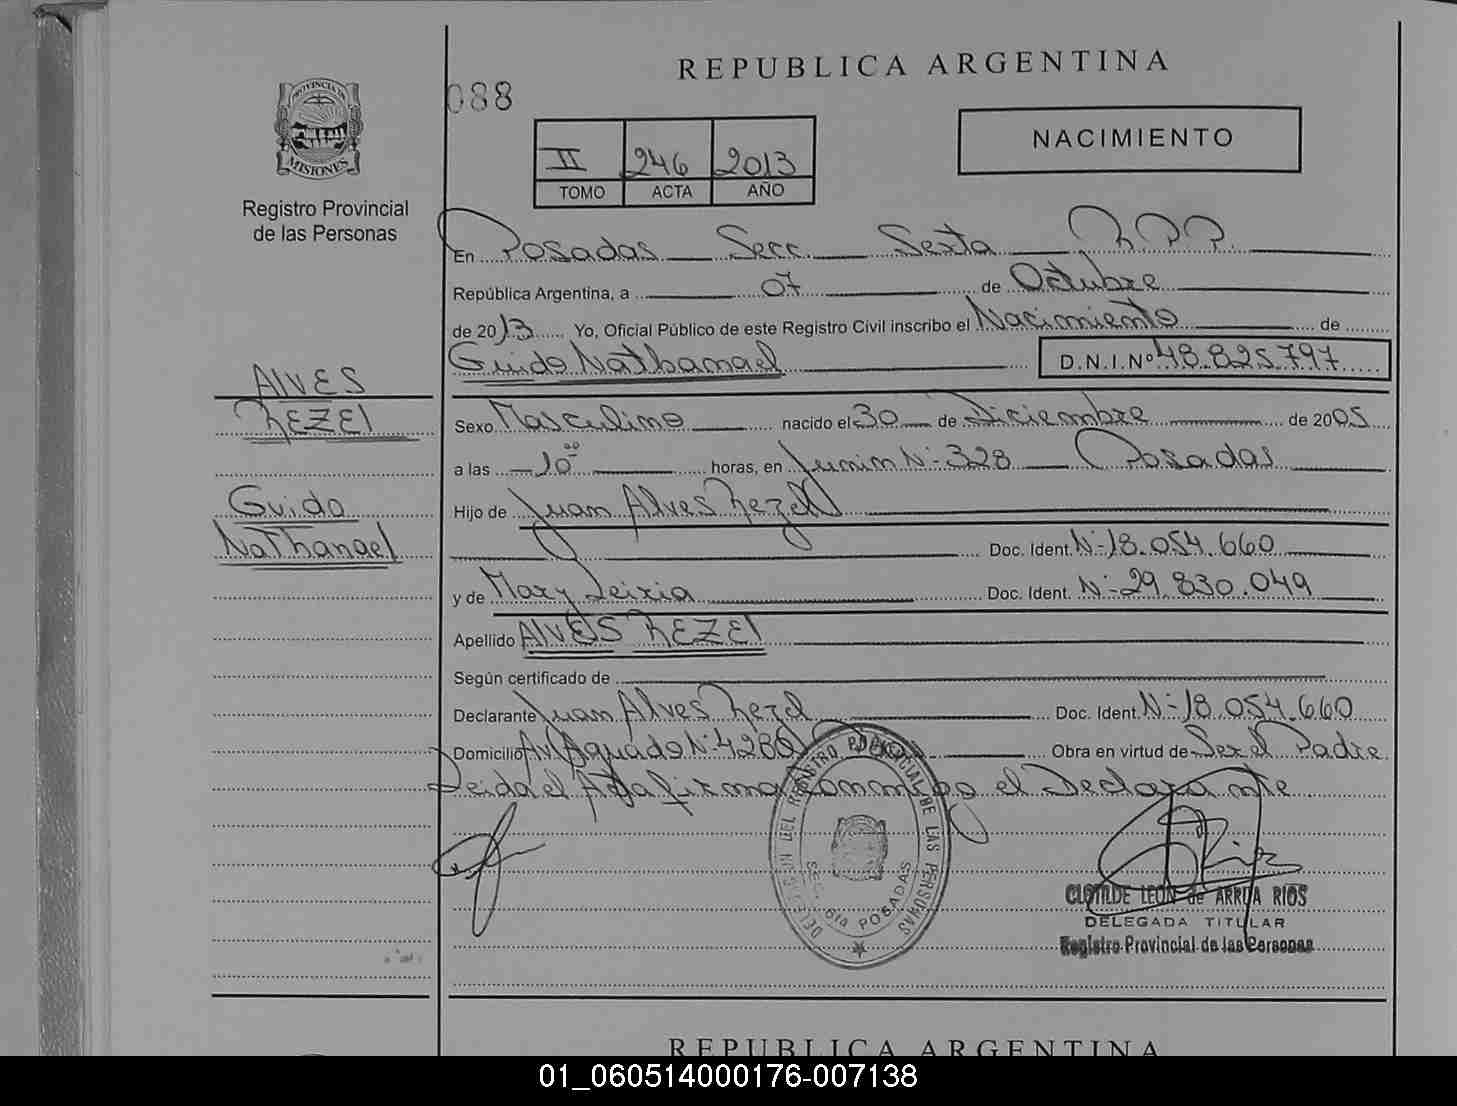 088
REPUBLICA ARGENTINA
PROVINCIA DE
MISIONES
Registro Provincial
de las Personas
II 246 2013
TOMO ACTA AÑO
NACIMIENTO
En Posadas Secc. Sexta R.P.P.
República Argentina, a 07 de Octubre
de 2013 Yo, Oficial Público de este Registro Civil inscribo el Nacimiento de
Guido Nathanael D.N.I.Nº 48.825.797
ALVES
REZEL
Guido
Nathanael
Sexo Masculino nacido el 30 de Diciembre de 2005
a las 10 00 horas, en Junin Nº 328 Posadas
Hijo de Juan Alves Rezel
Doc. Ident. Nº 18.054.660
y de Mary Leixia Doc. Ident. Nº 29.830.049
Apellido ALVES REZEL
Según certificado de
Declarante Juan Alves Rezel Doc. Ident. Nº 18.054.660
Domicilio Av. Aguado Nº 4280 Obra en virtud de Ser el Padre
Leida el Acta firma conmigo el Declarante
DEL REGISTRO PROVINCIAL DE LAS PERSONAS
SEC. 6ta POSADAS
CLOTILDE LEON de ARRUA RIOS
DELEGADA TITULAR
Registro Provincial de las Personas
REPUBLICA ARGENTINA
01_060514000176-007138